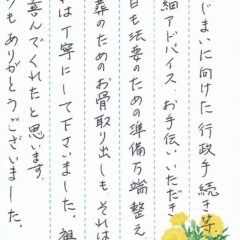 じまいに向けた行政手続き等、
細アドバイス、お手伝いいただき
日も法要のための準備万端整え
葬のためのお骨取り出しも、それは
は丁寧にして下さいました。祖
喜んでくれたと思います。
もありがとうございました。